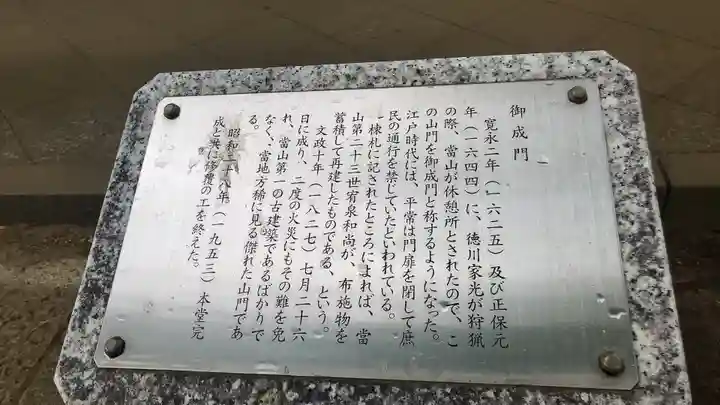 御成門
寛永二年（一六二五）及び正保元
年（一六四四）に、徳川家光が狩猟
の際、當山が休憩所とされたので、こ
の山門を御成門と称するようになった。
江戸時代には、平常は門扉を閉して庶
民の通行を禁じていたといわれている。
棟札に記されたところによれば、當
山第二十三世宥泉和尚が、布施物を
蓄積して再建したものである、という。
文政十年（一八二七）七月二十六
日に成り、二度の火災にもその難を免
れ、當山第一の古建築であるばかりで
なく、當地方稀に見る傑れた山門であ
る。
昭和二十八年（一九五三）本堂完
成と共に修復の工を終えた。